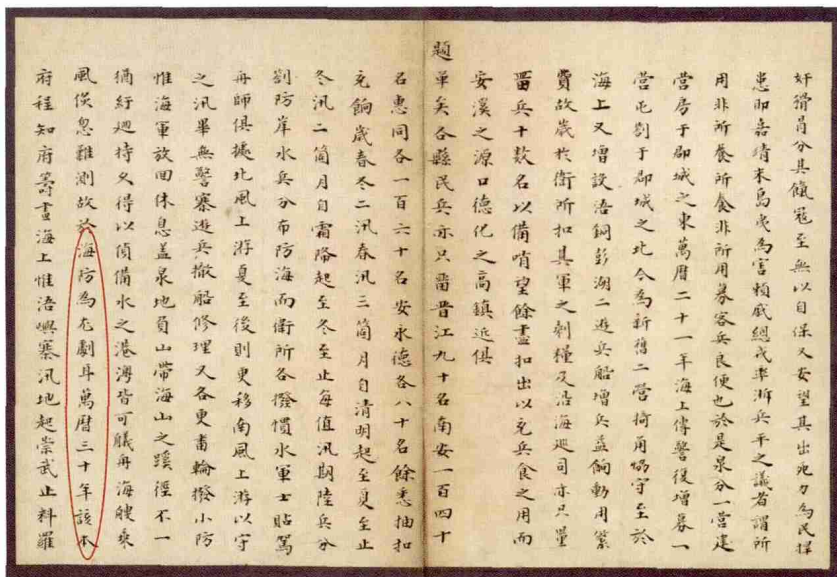 奸猾員分其餼寇至無以自保又安望其出死力為民捍
患耶嘉靖末島夷為害賴戚總戎率浙兵平之議者謂所
用非所養所養非所用募客兵良便也於是泉分一營建
營房于郡城之東萬曆二十一年海上傳警復增募一
營屯劄于郡城之北今為新舊二營掎角守至於
海上又增設浯銅彭湖二遊兵船增兵益餉動用繁
費故歲於衛所扣其軍之剩糧及沿海巡司亦只量
畱兵十數名以備哨望餘盡扣出以充兵食之用而
安溪之源口德化之高鎮近俱
題革矣各縣民兵亦只畱晋江九十名南安一百四十
名惠同各一百六十名安永德各八十名餘悉抽扣
充餉歲春冬二汛春汛三箇月自清明起至夏至止
冬汛二箇月自霜降起至冬至止每值汛期陸兵分
劄防岸水兵分布防海而衛所各撥慣水軍士貼駕
舟師俱據北風上游夏至後則更移南風上游以守
之汛畢無警寨遊兵撤船修理又各更畨輪撥小防
惟海軍放回休息蓋泉地負山帶海山之蹊徑不一
猶紆廻持久得以偵備水之港澳皆可艤舟海艘乘
風倐忽難測故於海防為尤劇耳萬曆三十年該本
府程知府籌畫海上惟浯嶼寨汛地起崇武止料羅